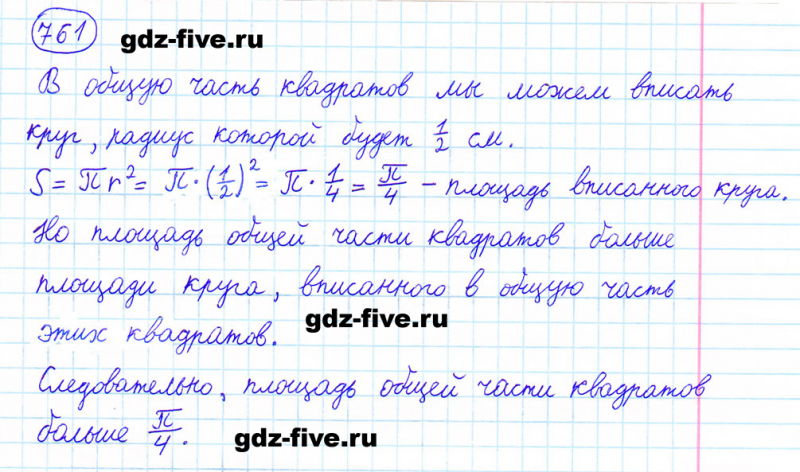 761 gdz-five.ru
В общую часть квадратов мы можем вписать
круг, радиус которой будет 1/2 см.
S = πr² = π · (1/2)² = π · 1/4 = π/4 – площадь вписанного круга.
Но площадь общей части квадратов больше
площади круга, вписанного в общую часть
gdz-five.ru
этих квадратов.
Следовательно, площадь общей части квадратов
больше π/4.
gdz-five.ru